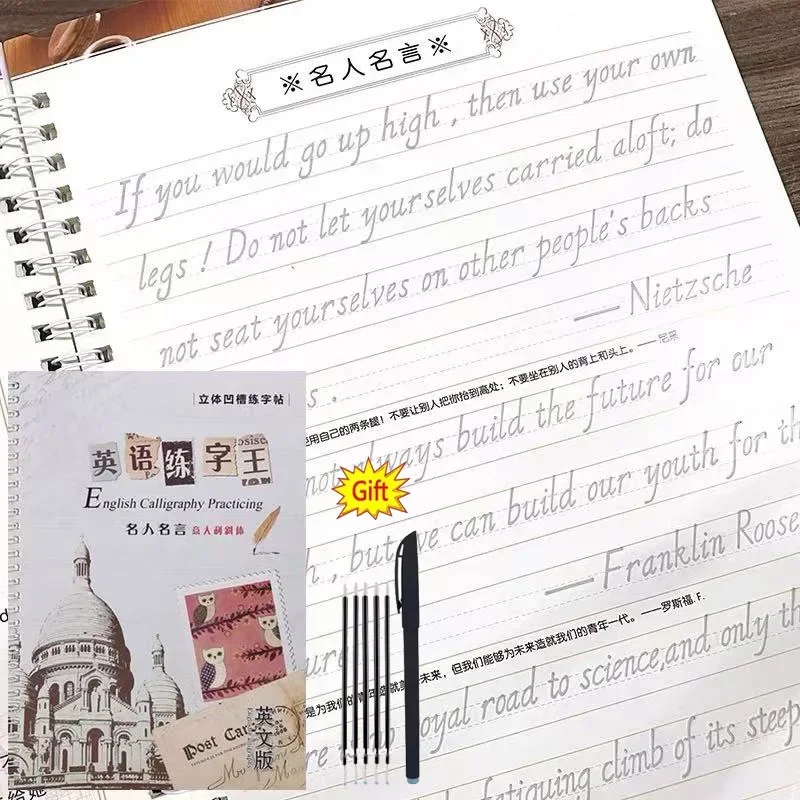 ※名人名言※
If you would go up high , then use your own
legs ! Do not let yourselves carried aloft; do
not seat yourselves on other people's backs
— Nietzsche
使用自己的两条腿！不要让别人把你抬到高处；不要坐在别人的背上和头上。——尼采
s .
not always build the future for our
h , but we can build our youth for th
— Franklin Roose
是为我们的青年造就美 未来，但我们能够为未来造就我们的青年一代。——罗斯福.F.
ure
royal road to science,and only th
fatiguing climb of its steep
立体凹槽练字帖
英语练字王
English Calligraphy Practicing
名人名言 意大利斜体
Post Car
英文版
Gift